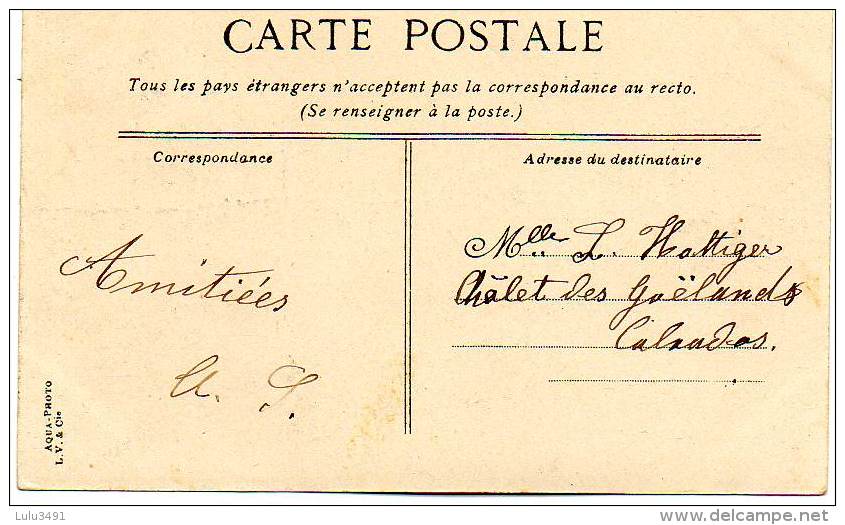 CARTE POSTALE
Tous les pays étrangers n'acceptent pas la correspondance au recto.
(Se renseigner à la poste.)
Correspondance
Amitiées
A. S.
Adresse du destinataire
Mlle L. Hattiger
Châlet des Goëlands
Calvados.
AQUA-PHOTO
L. V. & Cie
Lulu3491
delcampe.net